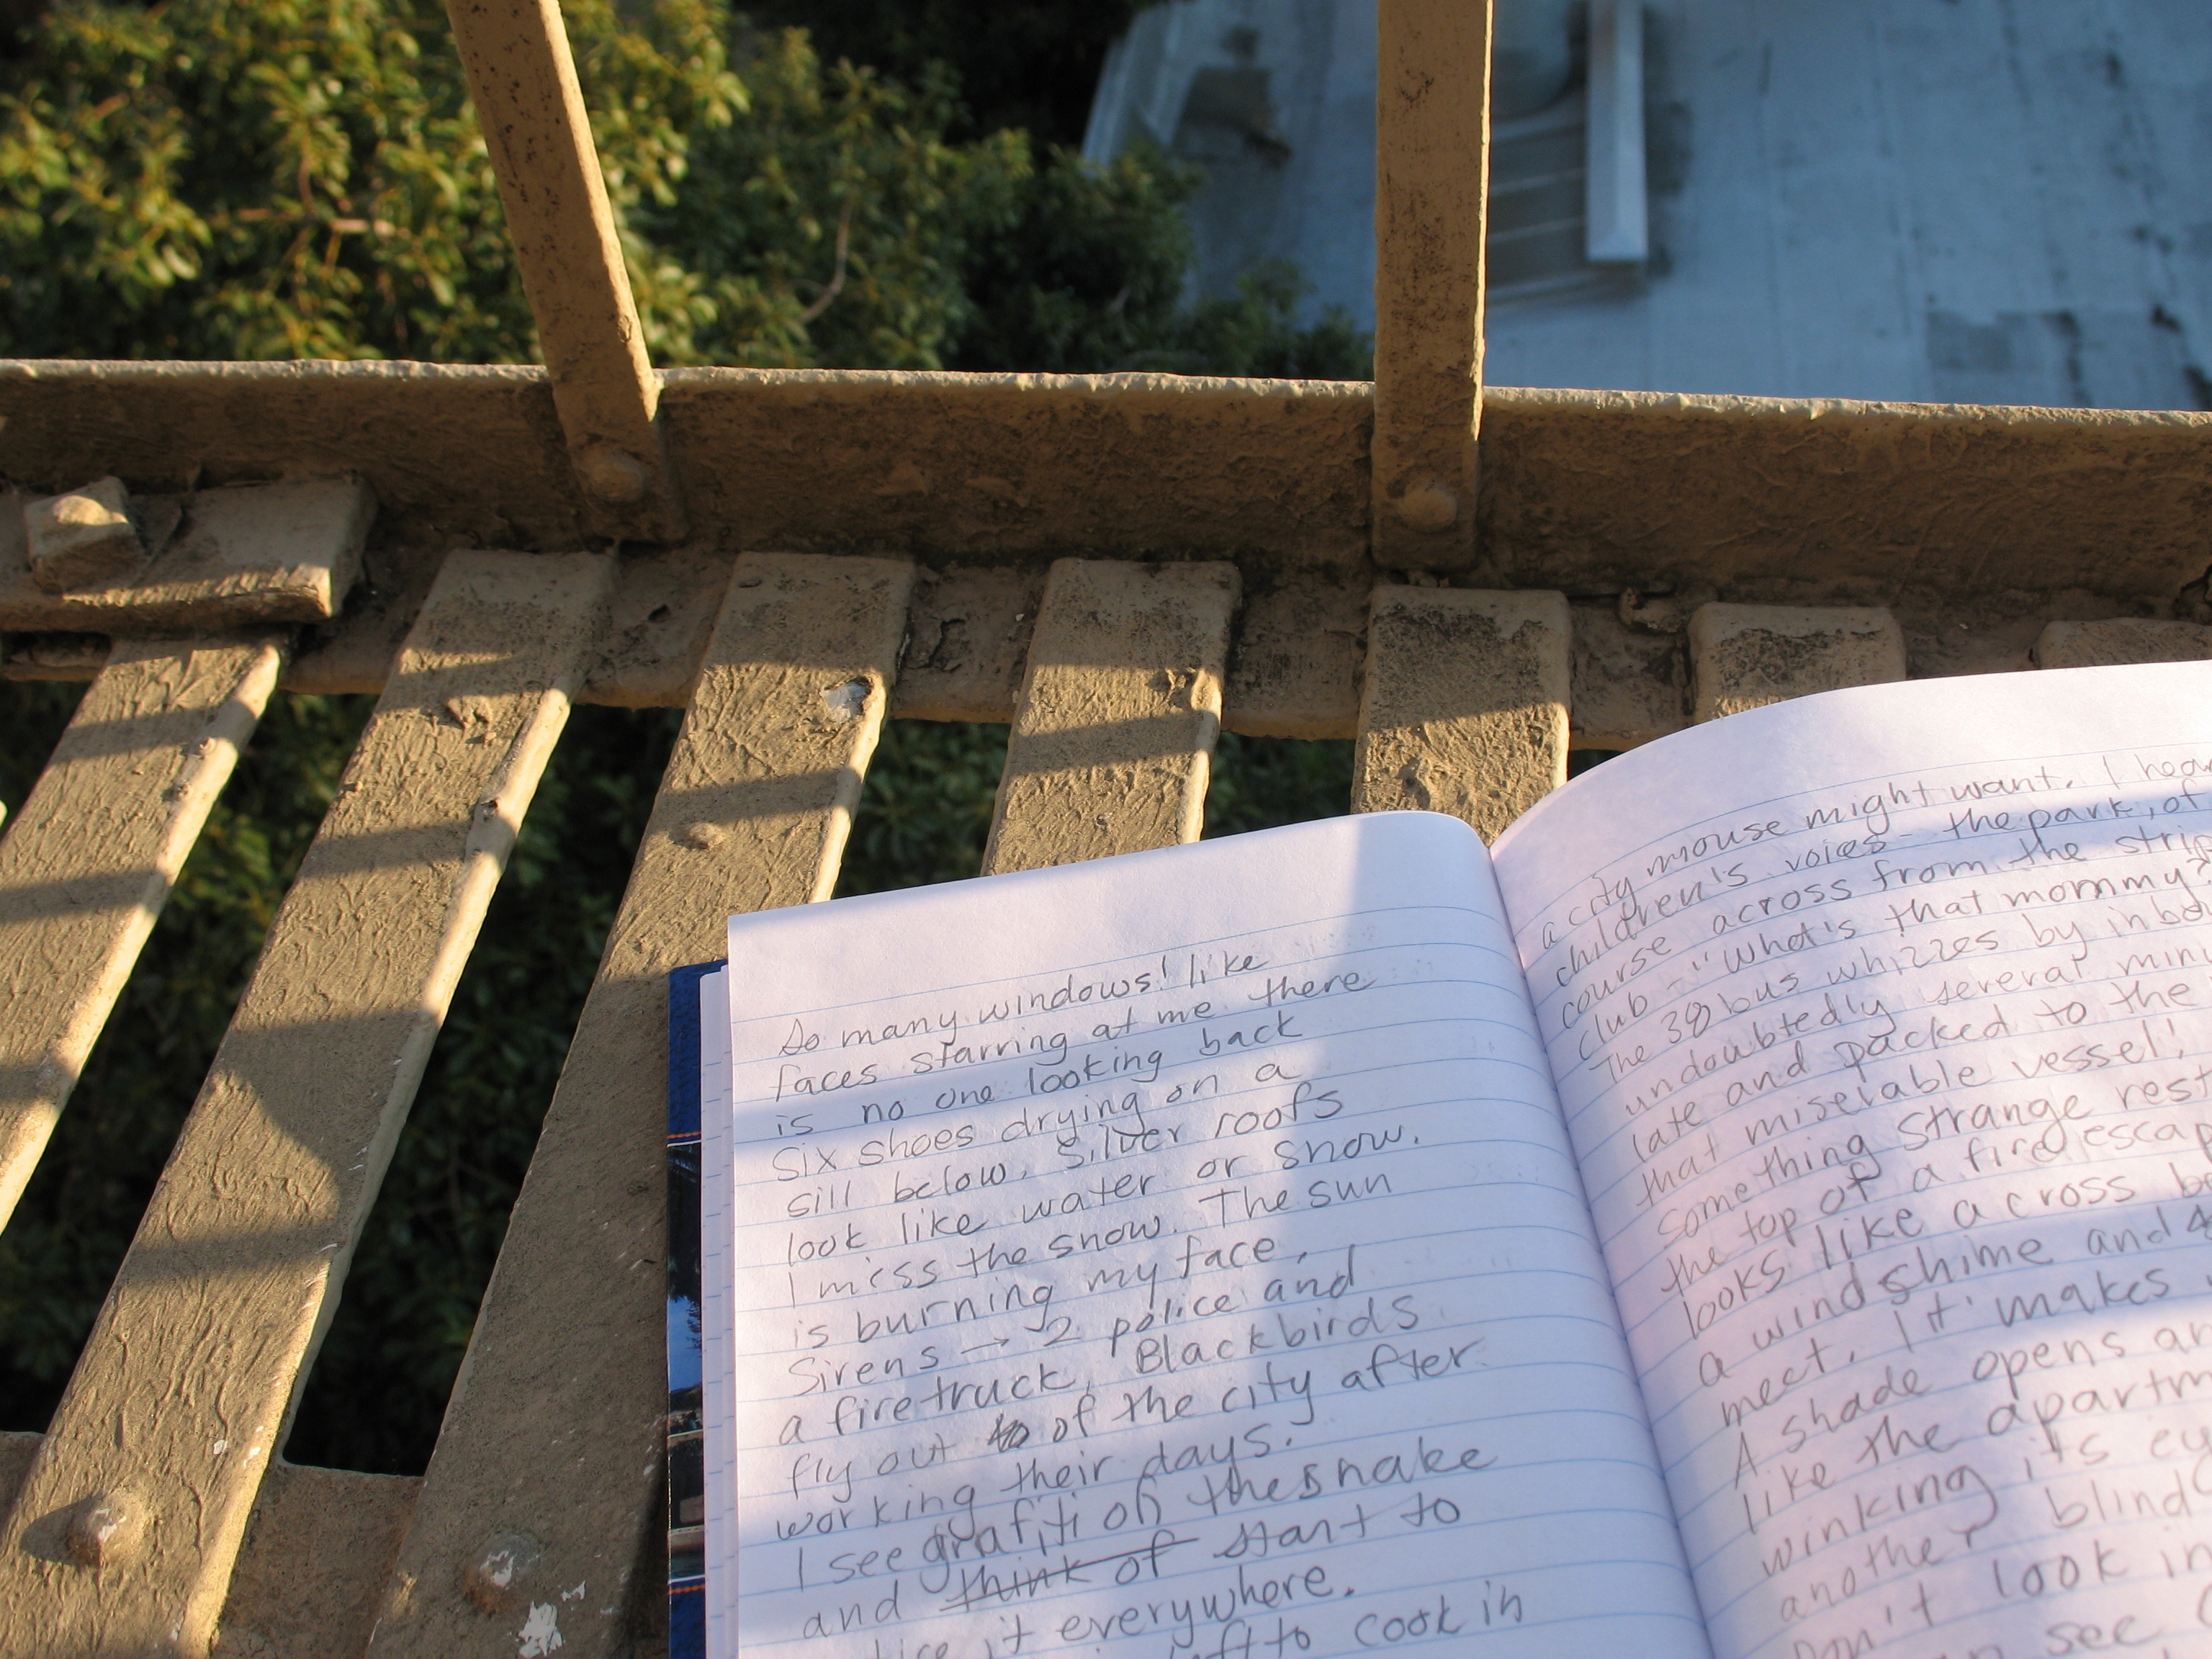 So many windows! like
faces starring at me there
is no one looking back
six shoes drying on a
sill below. Silver roofs
look like water or snow.
I miss the snow. The sun
is burning my face.
Sirens → 2 police and
a firetruck. Blackbirds
fly out of the city after
working their days.
I see grafiti of the snake
and think of start to
it everywhere.
to cook in
a city mouse might want. I hear
children's voices - the park, of
course across from the strip
club - "What's that mommy?
The 38 bus whizzes by inbou
undoubtedly several minu
late and packed to the
that miserable vessel!
something strange rest
the top of a fire escap
looks like a cross be
a windshime and
meet. It makes
A shade opens an
like the apartm
winking its ey
another blind
Don't look in
see